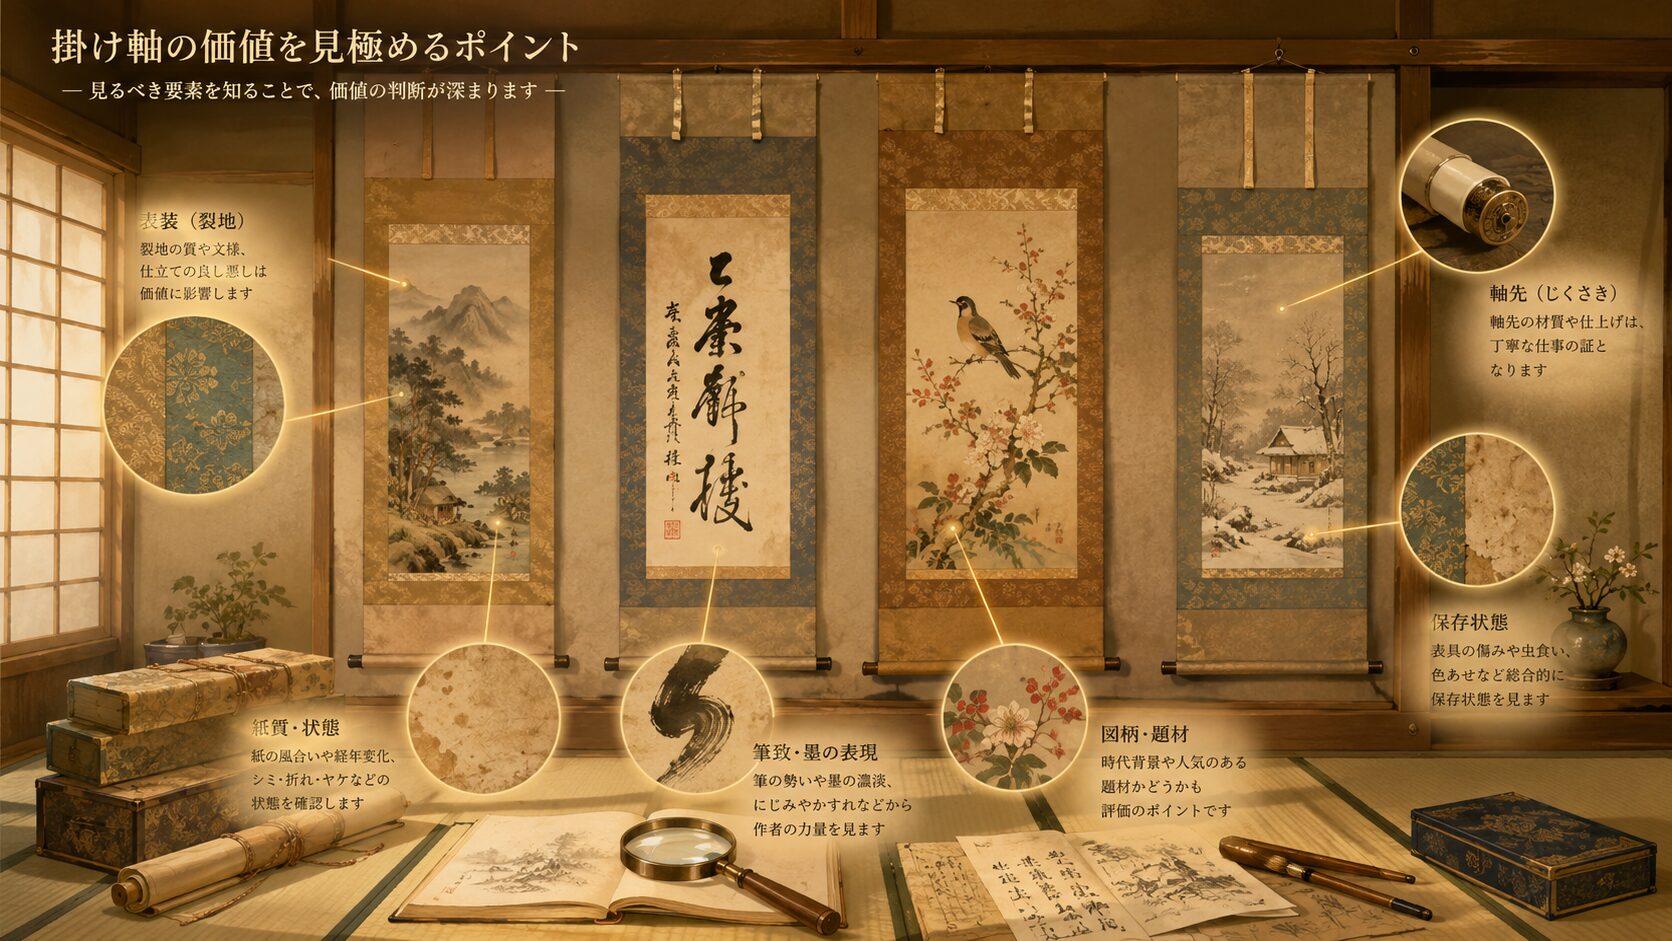 掛け軸の価値を見極めるポイント
― 見るべき要素を知ることで、価値の判断が深まります ―
表装（裂地）
裂地の質や文様、
仕立ての良し悪しは
価値に影響します
軸先（じくさき）
軸先の材質や仕上げは、
丁寧な仕事の証と
なります
保存状態
表具の傷みや虫食い、
色あせなど総合的に
保存状態を見ます
紙質・状態
紙の風合いや経年変化、
シミ・折れ・ヤケなどの
状態を確認します
筆致・墨の表現
筆の勢いや墨の濃淡、
にじみやかすれなどから
作者の力量を見ます
図柄・題材
時代背景や人気のある
題材かどうかも
評価のポイントです